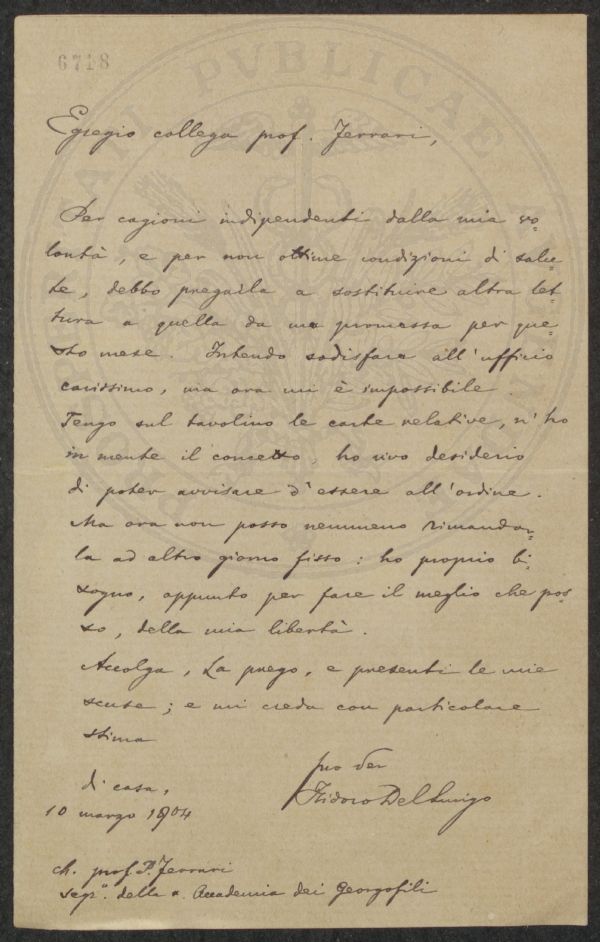 6718
PVBLICAE
Egregio collega prof. Ferrari,
Per cagioni indipendenti dalla mia vo=
lontà, e per non ottime condizioni di salu=
te, debbo pregarla a sostituire altra let=
tura a quella da me promessa per que=
sto mese. Intendo sodisfare all'ufficio
carissimo, ma ora mi è impossibile.
Tengo sul tavolino le carte relative, n'ho
in mente il concetto, ho vivo desiderio
di poter avvisare d'essere all'ordine.
Ma ora non posso nemmeno rimandar=
la ad altro giorno fisso: ho proprio bi=
sogno, appunto per fare il meglio che pos=
so, della mia libertà.
Accolga, La prego, e presenti le mie
scuse; e mi creda con particolare
stima
suo dev
Isidoro Del Lungo
di casa,
10 marzo 1904
ch. prof. P. Ferrari
segr.º della r. Accademia dei Georgofili